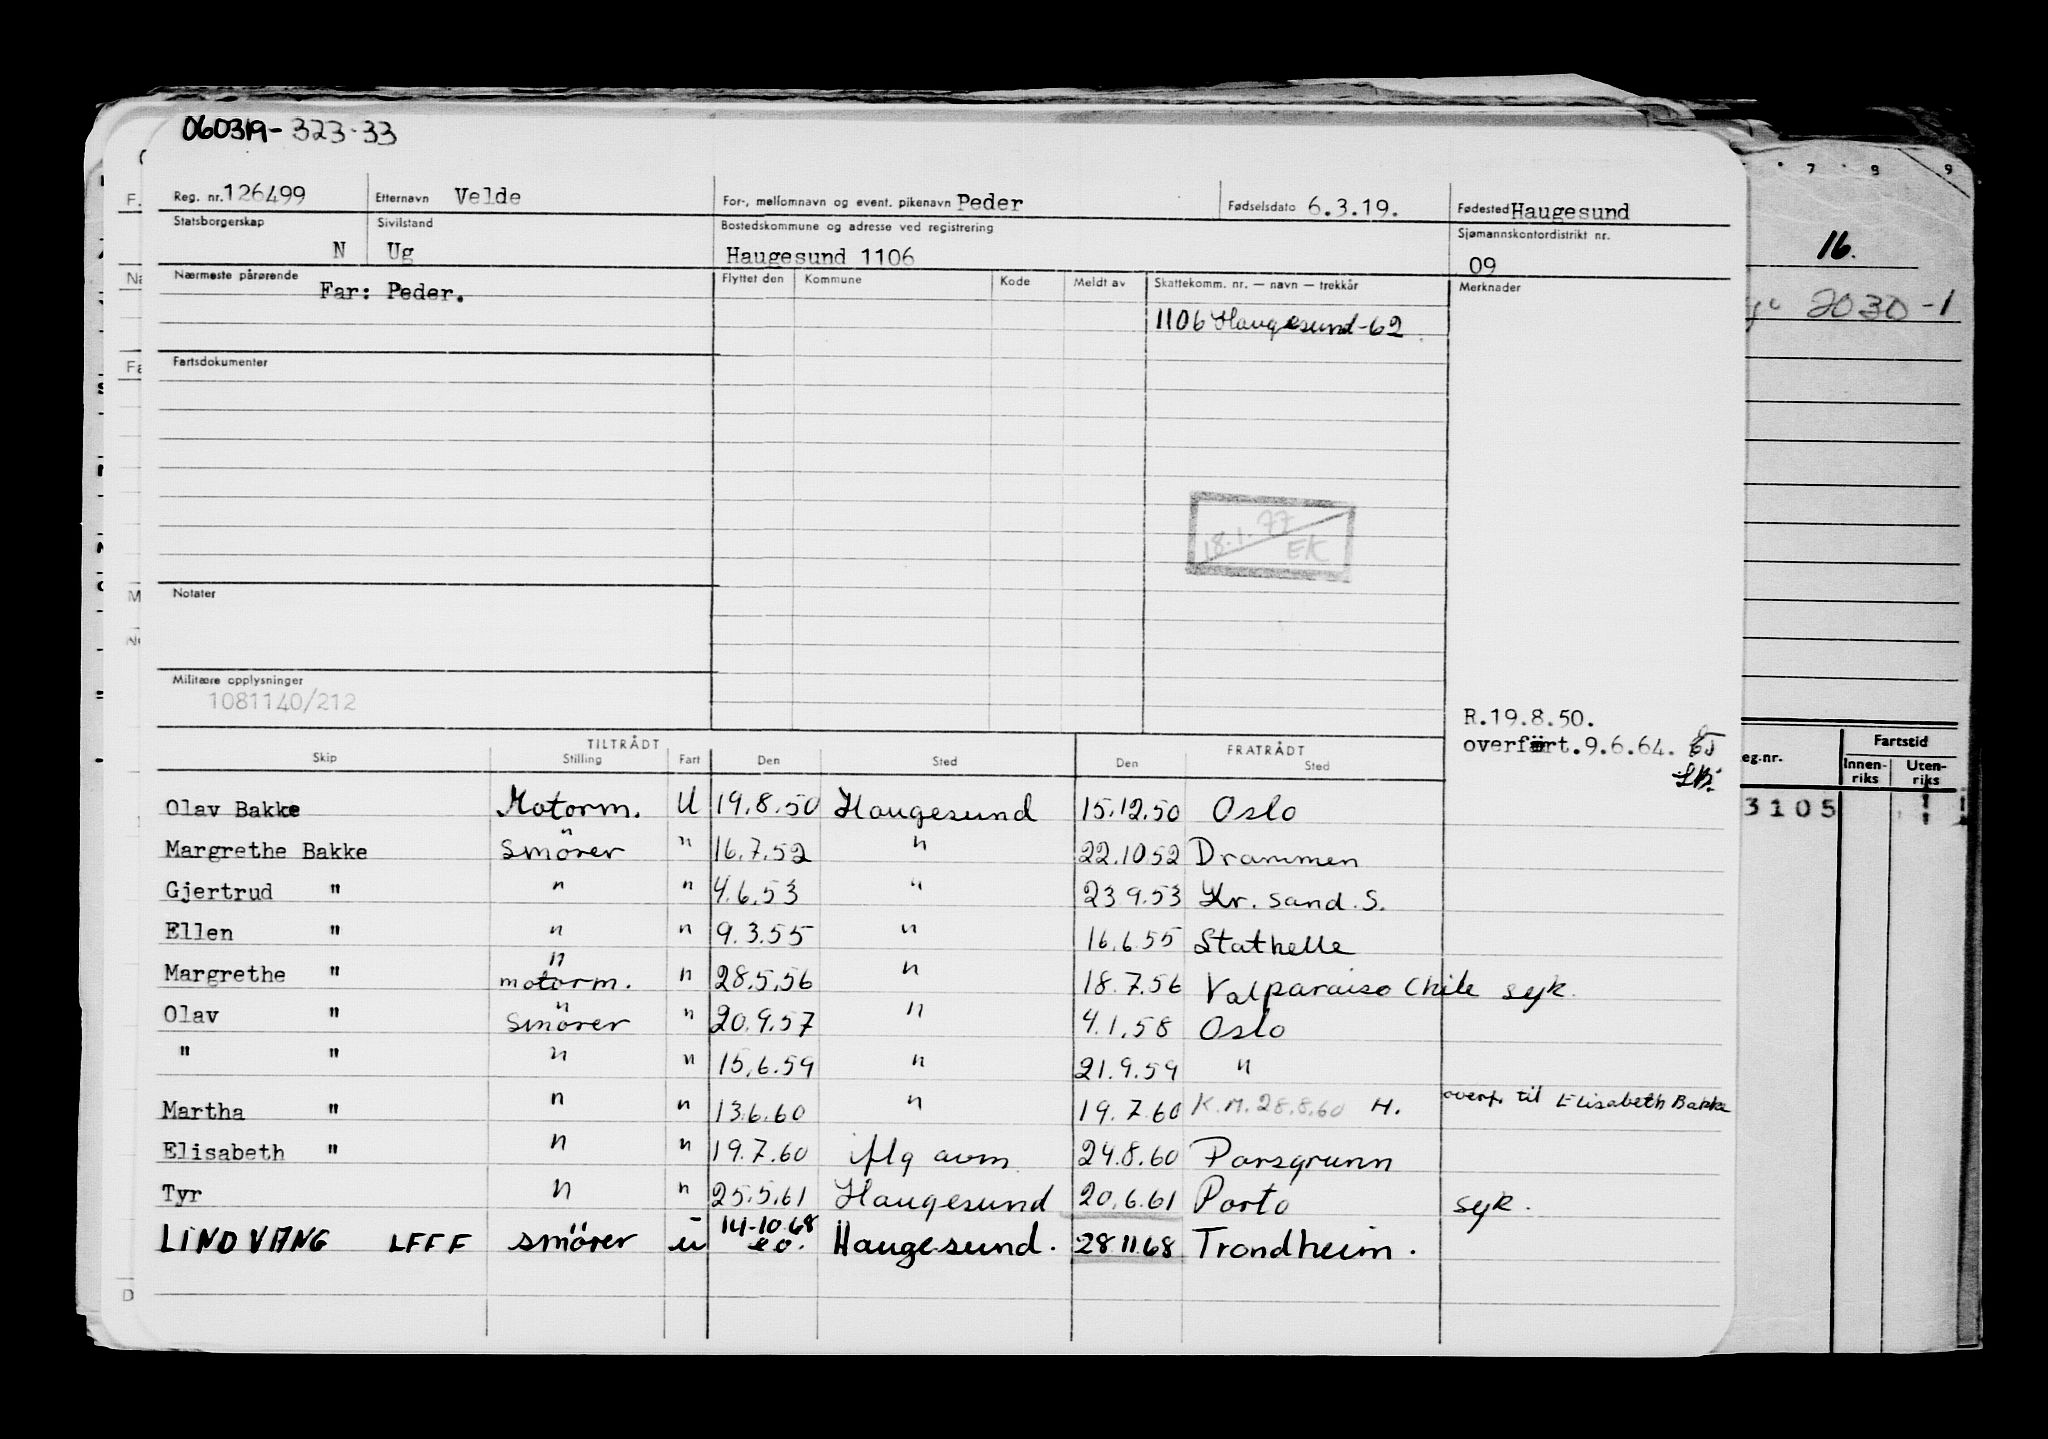 060319-323-33
Reg. nr. 126499 Etternavn Velde For-, mellomnavn og event. pikenavn Peder Fødselsdato 6.3.19. Fødested Haugesund
Statsborgerskap N Sivilstand Ug Bostedskommune og adresse ved registrering Haugesund 1106 Sjømannskontordistrikt nr. 09
Nærmeste pårørende Far: Peder. Flyttet den Kommune Kode Meldt av Skattekomm. nr. — navn — trekkår Merknader
1106 Haugesund-62
Fartsdokumenter
18.1.77 EK
Notater
Militære opplysninger
1081140/212
R.19.8.50.
overført.9.6.64.
TILTRÅDT FRATRÅDT
Skip Stilling Fart Den Sted Den Sted
Olav Bakke Motorm. U 19.8.50 Haugesund 15.12.50 Oslo
Margrethe Bakke Smörer " 16.7.52 " 22.10 52 Drammen
Gjertrud " " " 4.6.53 " 23 9.53 Kr. Sand. S.
Ellen " " " 9.3.55 " 16.6.55 Stathelle
Margrethe " motorm. " 28.5.56 " 18.7.56 Valparaiso Chile syk.
Olav " Smörer " 20.9.57 " 4.1.58 Oslo
" " " " 15.6.59 " 21.9.59 "
Martha " " " 13.6.60 " 19.7.60 K.M. 28.8.60 H. overf. til Elisabeth Bakke
Elisabeth " " " 19.7.60 iflg avm 24.8.60 Porsgrunn
Tyr " " 25.5.61 Haugesund 20.6.61 Porto syk.
LINDVANG LFFF smörer u 14-10.68 Haugesund. 28 11.68 Trondheim.
7 8 9
16.
2030-1
eg.nr. Fartstid
Innen-riks Uten-riks
3105